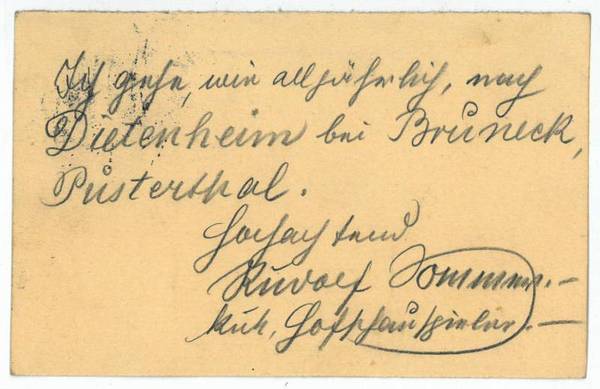 Ich gehe, wie alljährlich, nach
Dietenheim bei Bruneck,
Pusterthal.
Hochachtend
Rudolf Sommer.
Hofschauspieler.